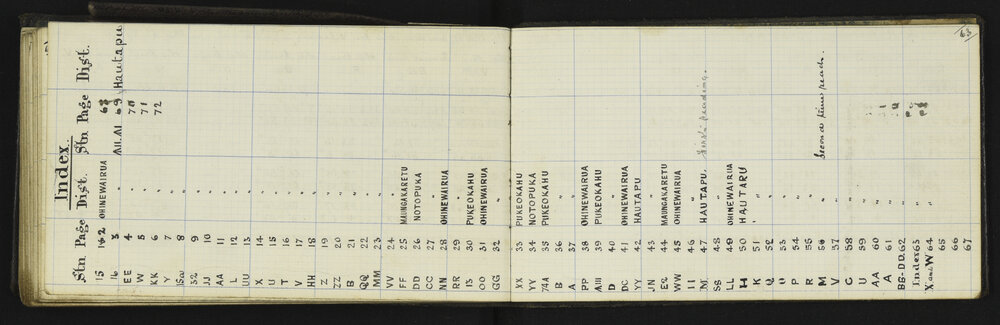 63
Index.
Stn Page Dist. Stn Page Dist.
15 1&2 OHINEWAIRUA AII. AI 69 Hautapu
16 3 "
EE 4 " 70
W 5 " 71
KK 6 " 72
Y 7 "
8 "
S2 9 "
JJ 10 "
AA 11 "
L 12 "
UU 13 "
X 14 "
U 15 "
T 16 "
V 17 "
HH 18 "
Z 19 "
ZZ 20 "
B 21 "
QQ 22 "
MM 23 "
VV 24 "
FF 25 MAUNGAKARETU
DD 26 NOTOPUKA
CC 27 "
NN 28 OHINEWAIRUA
RR 29 "
13 30 PUKEOKAHU
OO 31 OHINEWAIRUA
GG 32 "
XX 33 PUKEOKAHU
YY 34 NOTOPUKA
74A 35 PUKEOKAHU
B 36 "
A 37 "
PP 38 OHINEWAIRUA
AIII 39 PUKEOKAHU
D 40 "
DC 41 OHINEWAIRUA
YY 42 HAUTAPU
JN 43 "
E2 44 MAUNGAKARETU
WW 45 OHINEWAIRUA
11 46 "
M 47 HAUTAPU. First reading.
SS 48 "
LL 49 OHINEWAIRUA
H 50 HAUTAPU
K 51 "
Q 52 "
O 53 "
P 54 "
R 55 "
M 56 " Second time read.
V 57 "
C 58 "
U 59 "
AA 60 "
A 61 "
BB-DD. 62
Index 63
X and W 64
65
66
67